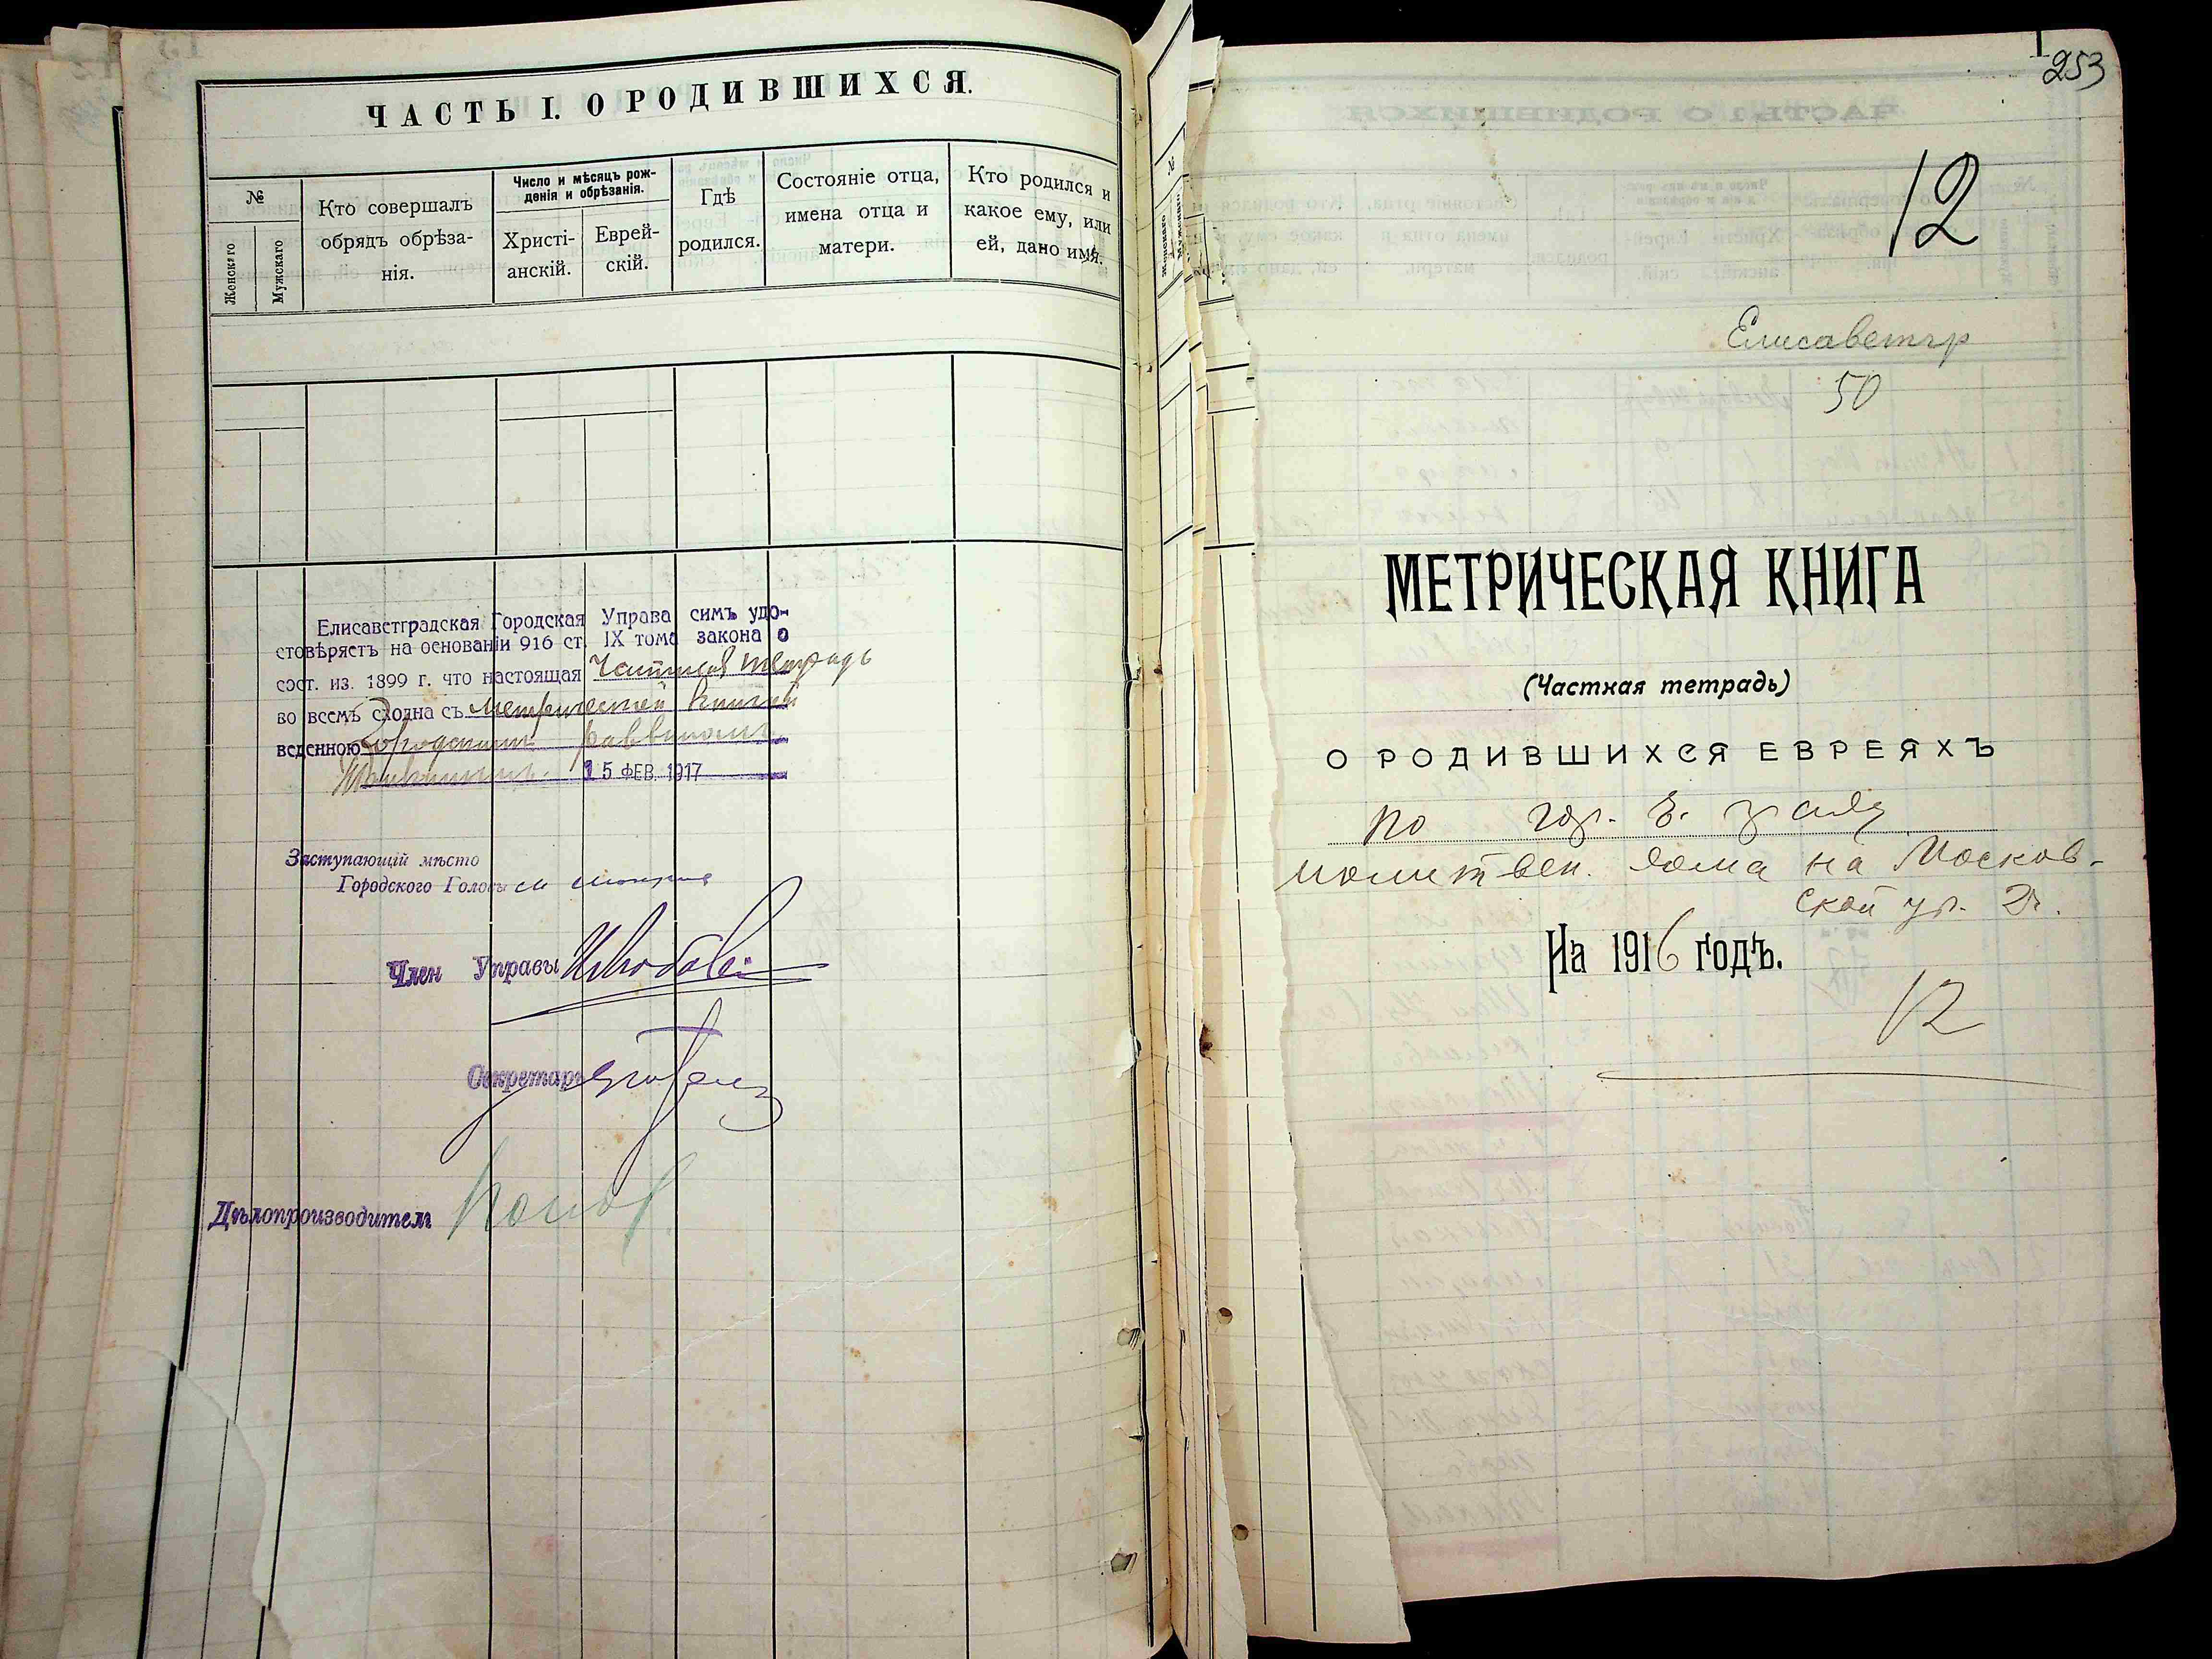 ЧАСТЬ I. О РОДИВШИХСЯ.
№
Женскаго
Мужскаго
Кто совершалъ
обрядъ обрѣза-
нія.
Число и мѣсяцъ рож-
денія и обрѣзанія.
Христі-
анскій.
Еврей-
скій.
Гдѣ
родился.
Состояніе отца,
имена отца и
матери.
Кто родился и
какое ему, или
ей, дано имя.
Елисаветградская Городская Управа симъ удо-
стовѣряетъ на основаніи 916 ст. IX тома закона о
сост. из. 1899 г. что настоящая Частная тетрадь
во всемъ сходна съ метрической книгой
веденною Городскимъ раввиномъ
15 ФЕВ. 1917
Заступающій мѣсто
Городского Головы
Член Управы
Секретарь
Дѣлопроизводитель
253
12
Елисаветгр
50
МЕТРИЧЕСКАЯ КНИГА
(Частная тетрадь)
О РОДИВШИХСЯ ЕВРЕЯХЪ
по гор. Е. граду
молитвен. дома на Москов-
ской ул.
На 1916 годъ.
12